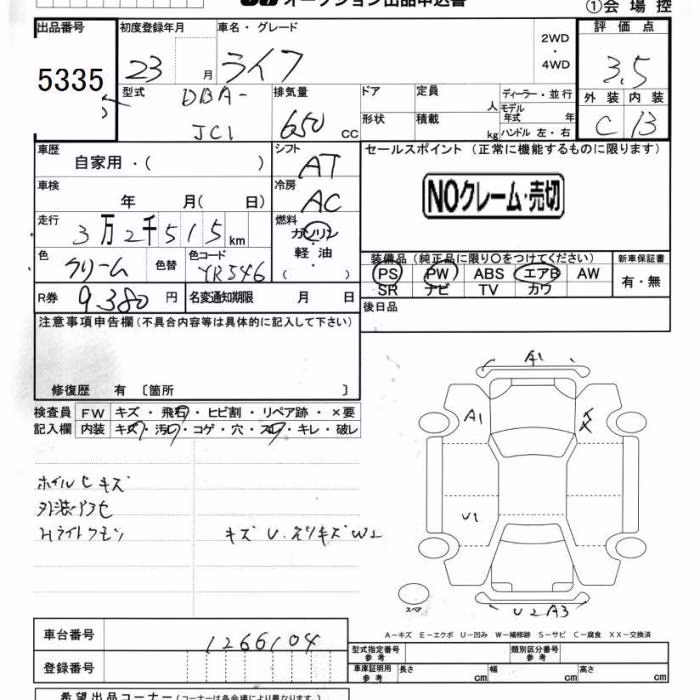 オークション出品申込書
①会場控
出品番号 初度登録年月 車名・グレード 評価点
5335 23 月 ライフ 2WD・4WD 3.5
型式 DBA-JC1 排気量 650 cc
ドア 定員 人 ディーラー・並行
形状 積載 kg モデル年式 年
ハンドル 左・右
外装 内装
C B
車歴 自家用・( ) シフト AT
セールスポイント (正常に機能するものに限ります)
NOクレーム・売切
車検 年 月( 日) 冷房 AC
走行 3万2千515km 燃料 ガソリン 軽油 ( ・ )
色 クリーム 色替 色コード YR546
装備品(純正品に限り〇をつけてください) 新車保証書
PS PW ABS エアB AW 有・無
SR ナビ TV カワ
R券 9,380円 名変通知期限 月 日
後日品
注意事項申告欄(不具合内容等は具体的に記入して下さい)
修復歴 有〔箇所 〕
検査員 FW キズ・飛石・ヒビ割・リペア跡・×要
記入欄 内装 キズ・汚レ・コゲ・穴・スレ・キレ・破レ
A1
A1
U1
ホイルCキズ
キズ U
W2
U2 A3
スペア
A-キズ E-エクボ U-凹み W-補修跡 S-サビ C-腐食 XX-交換済
車台番号 1266104
登録番号
型式指定番号 参考 類別区分番号 参考
車庫証明用 参考 長さ cm 幅 cm 高さ cm
希望出品コーナー(コーナーは各会場により異なります。)